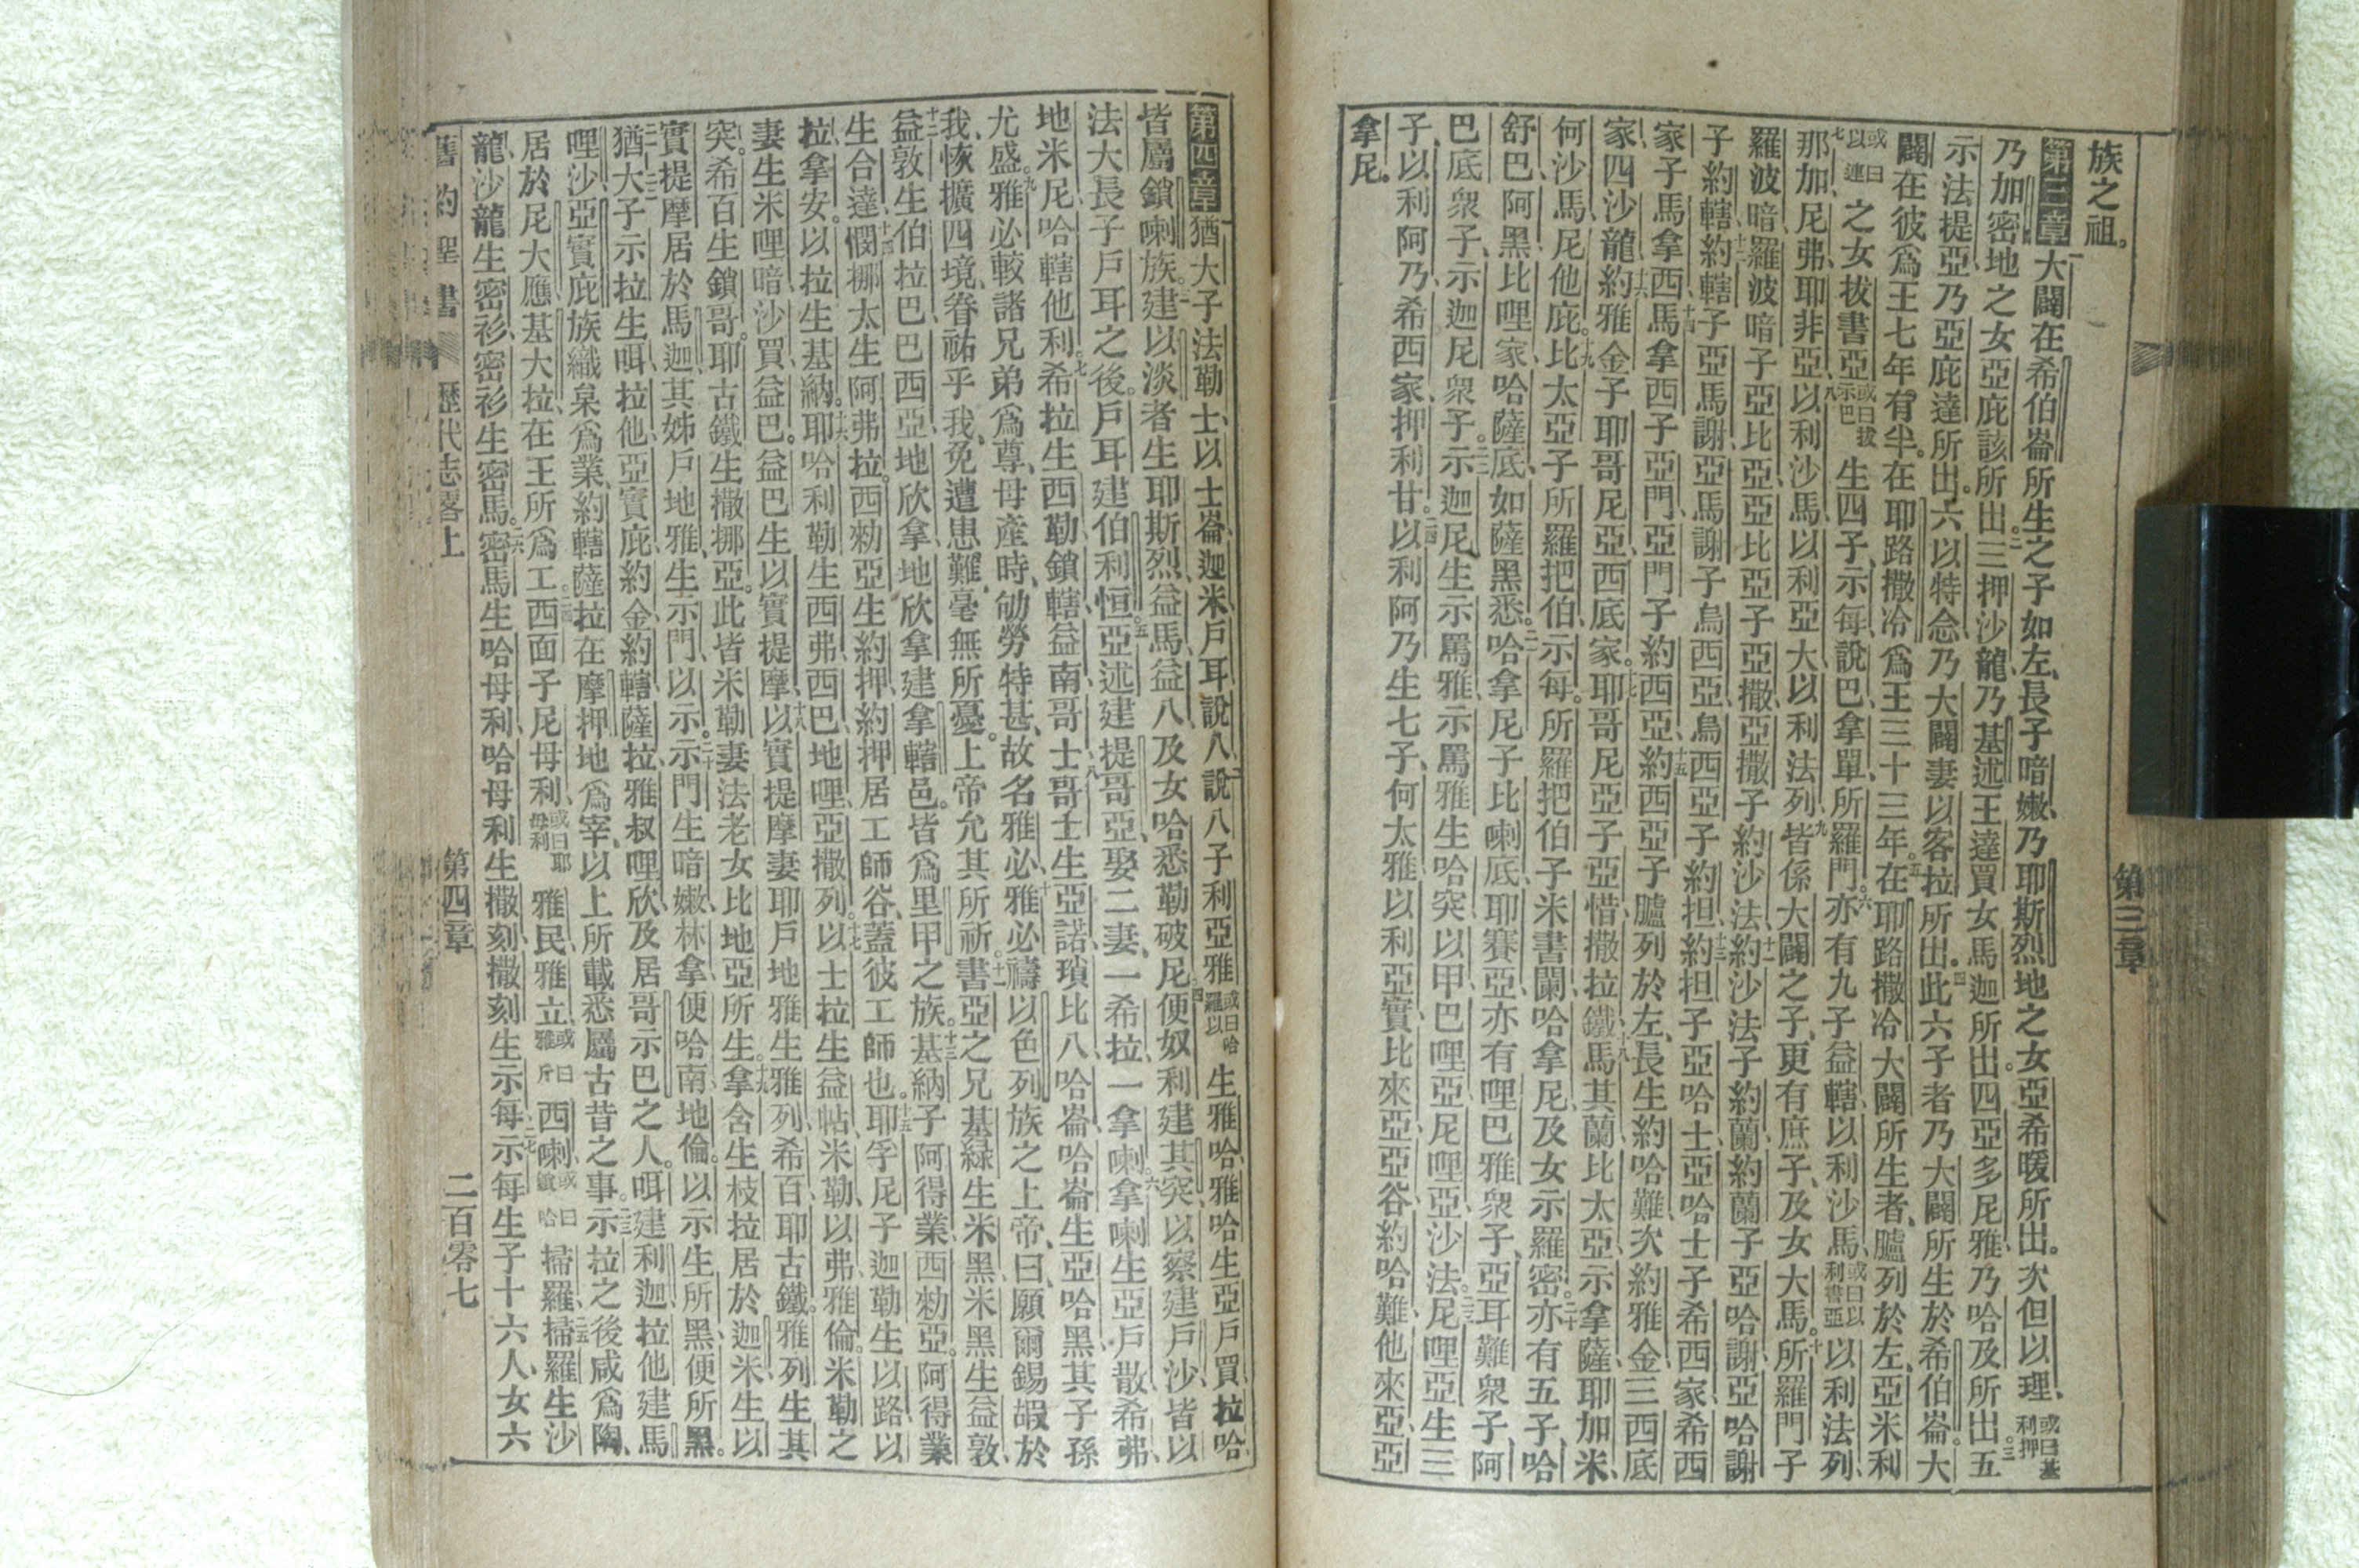 族之祖。
第三章 大闢在希伯崙所生之子如左、長子暗嫩、乃耶斯烈地之女亞希暖所出。次但以理、或曰基利押
乃加密地之女亞庇該所出。三押沙龍、乃基述王達買女馬迦所出。四亞多尼雅、乃哈及所出。五
示法提亞、乃亞庇達所出。六以特念、乃大闢妻以客拉所出。此六子者、乃大闢所生於希伯崙。大
闢在彼爲王七年有半。在耶路撒冷爲王三十三年。在耶路撒冷大闢所生者、臚列於左、亞米利
或曰以連之女拔書亞或曰拔示巴生四子、示每、說巴、拿單、所羅門。亦有九子、益轄、以利沙馬、或曰以利書亞以利法列、
那加、尼弗、耶非亞、以利沙馬、以利亞大、以利法列、皆係大闢之子、更有庶子、及女大馬。所羅門子
羅波暗、羅波暗子亞比亞、亞比亞子亞撒、亞撒子約沙法、約沙法子約蘭、約蘭子亞哈謝、亞哈謝
子約轄、約轄子亞馬謝、亞馬謝子烏西亞、烏西亞子約担、約担子亞哈士、亞哈士子希西家、希西
家子馬拿西、馬拿西子亞門、亞門子約西亞、約西亞子臚列於左、長生約哈難、次約雅金、三西底
家、四沙龍、約雅金子耶哥尼亞、西底家。耶哥尼亞子亞惜、撒拉鐵、馬其蘭、比太亞、示拿薩、耶加米、
何沙馬、尼他庇。比太亞子所羅把伯、示每。所羅把伯子米書闌、哈拿尼、及女示羅密。亦有五子、哈
舒巴、阿黑、比哩家、哈薩底、如薩黑悉。哈拿尼子比喇底、耶賽亞、亦有哩巴雅衆子、亞耳難衆子、阿
巴底衆子、示迦尼衆子。示迦尼生示罵雅、示罵雅生哈突、以甲、巴哩亞、尼哩亞、沙法。尼哩亞生三
子、以利阿乃、希西家、押利甘。以利阿乃生七子、何太雅、以利亞實、比來亞、亞谷、約哈難、他來亞、亞
拿尼。
第三章
第四章 猶大子法勒士、以士崙、迦米、戶耳、說八、說八子利亞雅或曰哈羅以生雅哈、雅哈生亞戶買、拉哈、
皆屬鎖喇族。建以淡者生耶斯烈、益馬、益八、及女哈悉勒破尼、便奴利建其突、以察建戶沙、皆以
法大長子戶耳之後。戶耳建伯利恒。亞述建提哥亞、娶二妻、一希拉、一拿喇。拿喇生亞戶散、希弗、
地米尼、哈轄他利。希拉生西勒、鎖轄、益南、哥士、哥士生亞諾、瑣比八、哈崙、哈崙生亞哈黑其子孫
尤盛。雅必較諸兄弟爲尊、母產時、劬勞特甚、故名雅必、雅必禱以色列族之上帝、曰、願爾錫嘏於
我、恢擴四境、眷祐乎我、免遭患難、毫無所憂。上帝允其所祈。書亞之兄基綠生米黑、米黑生益敦、
益敦生伯拉巴、巴西亞、地欣拿、地欣拿建拿轄邑。皆爲里甲之族。基納子阿得業、西勑亞。阿得業
生合達、憫挪太生阿弗拉。西勑亞生約押、約押居工師谷、蓋彼工師也。耶孚尼子迦勒、生以路、以
拉、拿安。以拉生基納。耶哈利勒生西弗、西巴、地哩亞、撒列。以士拉生益帖、米勒、以弗、雅倫。米勒之
妻生米哩暗、沙買、益巴。益巴生以實提摩、以實提摩妻耶戶地雅生雅列、希百、耶古鐵。雅列生其
突。希百生鎖哥。耶古鐵生撒挪亞。此皆米勒妻法老女比地亞所生。拿含生枝拉居於迦米、生以
實提摩居於馬迦、其姊戶地雅、生示門、以示。示門生暗嫩、林拿、便哈南、地倫。以示生所黑、便所黑。
猶大子示拉生咡、拉他、亞實庇、約金、約轄薩、拉雅叔哩欣、及居哥示巴之人。咡建利迦、拉他建馬
哩沙、亞實庇族織枲爲業、約轄薩拉在摩押地爲宰、以上所載、悉屬古昔之事。示拉之後咸爲陶、
居於尼大應、基大拉、在王所爲工。西面子尼母利、或曰耶母利雅民、雅立、或曰雅斤西喇、或曰鎖哈掃羅、掃羅生沙
龍、沙龍生密衫、密衫生密馬。密馬生哈母利、哈母利生撒刻、撒刻生示每、示每生子十六人、女六
舊約聖書 歷代志畧上 第四章 二百零七